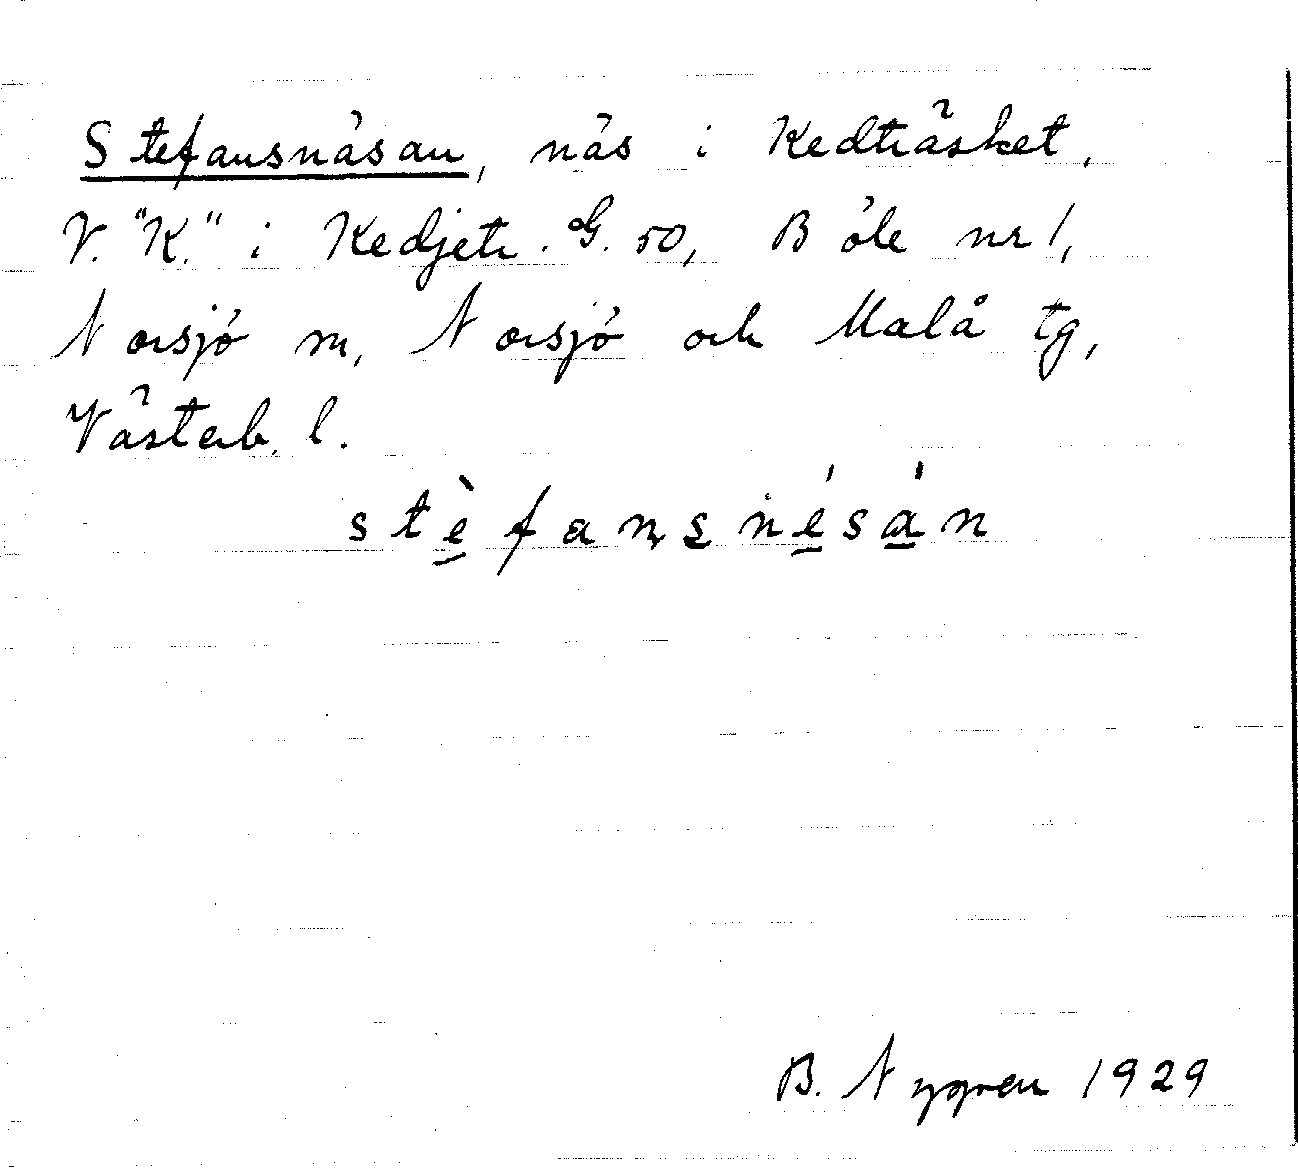 Stefansnäsan, näs i Kedträsket,
V. "K." i Kedjetr. G. 50, Böle nr 1,
Norsjö sn, Norsjö och Malå tg,
Västerb. l.
stèfansnésán
B. Nygren 1929